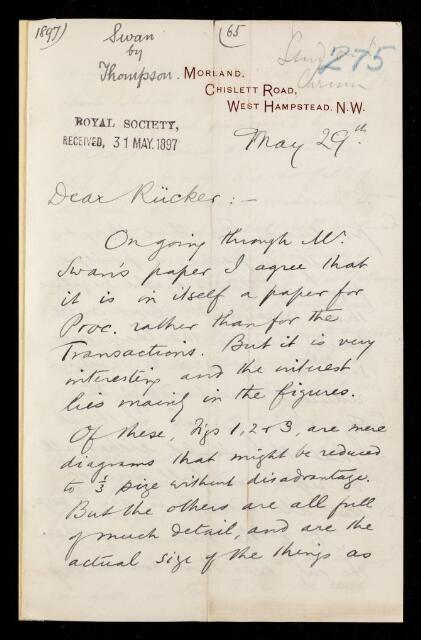 1897)
Swan
by
Thompson.
(65
275
MORLAND,
CHISLETT ROAD,
WEST HAMPSTEAD. N.W.
ROYAL SOCIETY,
RECEIVED, 31 MAY. 1897
May 29th.
Dear Rücker : –
On going through Mr.
Swan's paper I agree that
it is in itself a paper for
Proc. rather than for the
Transactions. But it is very
interesting and the interest
lies mainly in the figures.
Of these, Figs 1, 2 & 3, are mere
diagrams that might be reduced
to ⅓ size without disadvantage.
But the others are all full
of much detail, and are the
actual size of the things as